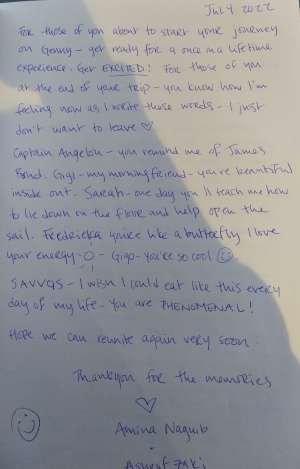 July 2022
For those of you about to start your journey
on Genny - get ready for a once in a lifetime
experience. Get EXCITED! For those of you
at the end of your trip - you know how I'm
feeling now as I write these words - I just
don't want to leave ♡
Captain Angelou - you remind me of James
Bond. Gigi - my morning friend - you're beautiful
inside out. Sarah - one day you'll teach me how
to lie down on the floor and help open the
sail. Fredericka you're like a butterfly I love
your energy - Gigo - you're so cool ☺
SAVVAS - I wish I could eat like this every
day of my life - You are PHENOMENAL!
Hope we can reunite again very soon.
Thankyou for the memories
♡
Amina Naguib
Ashraf Zaki